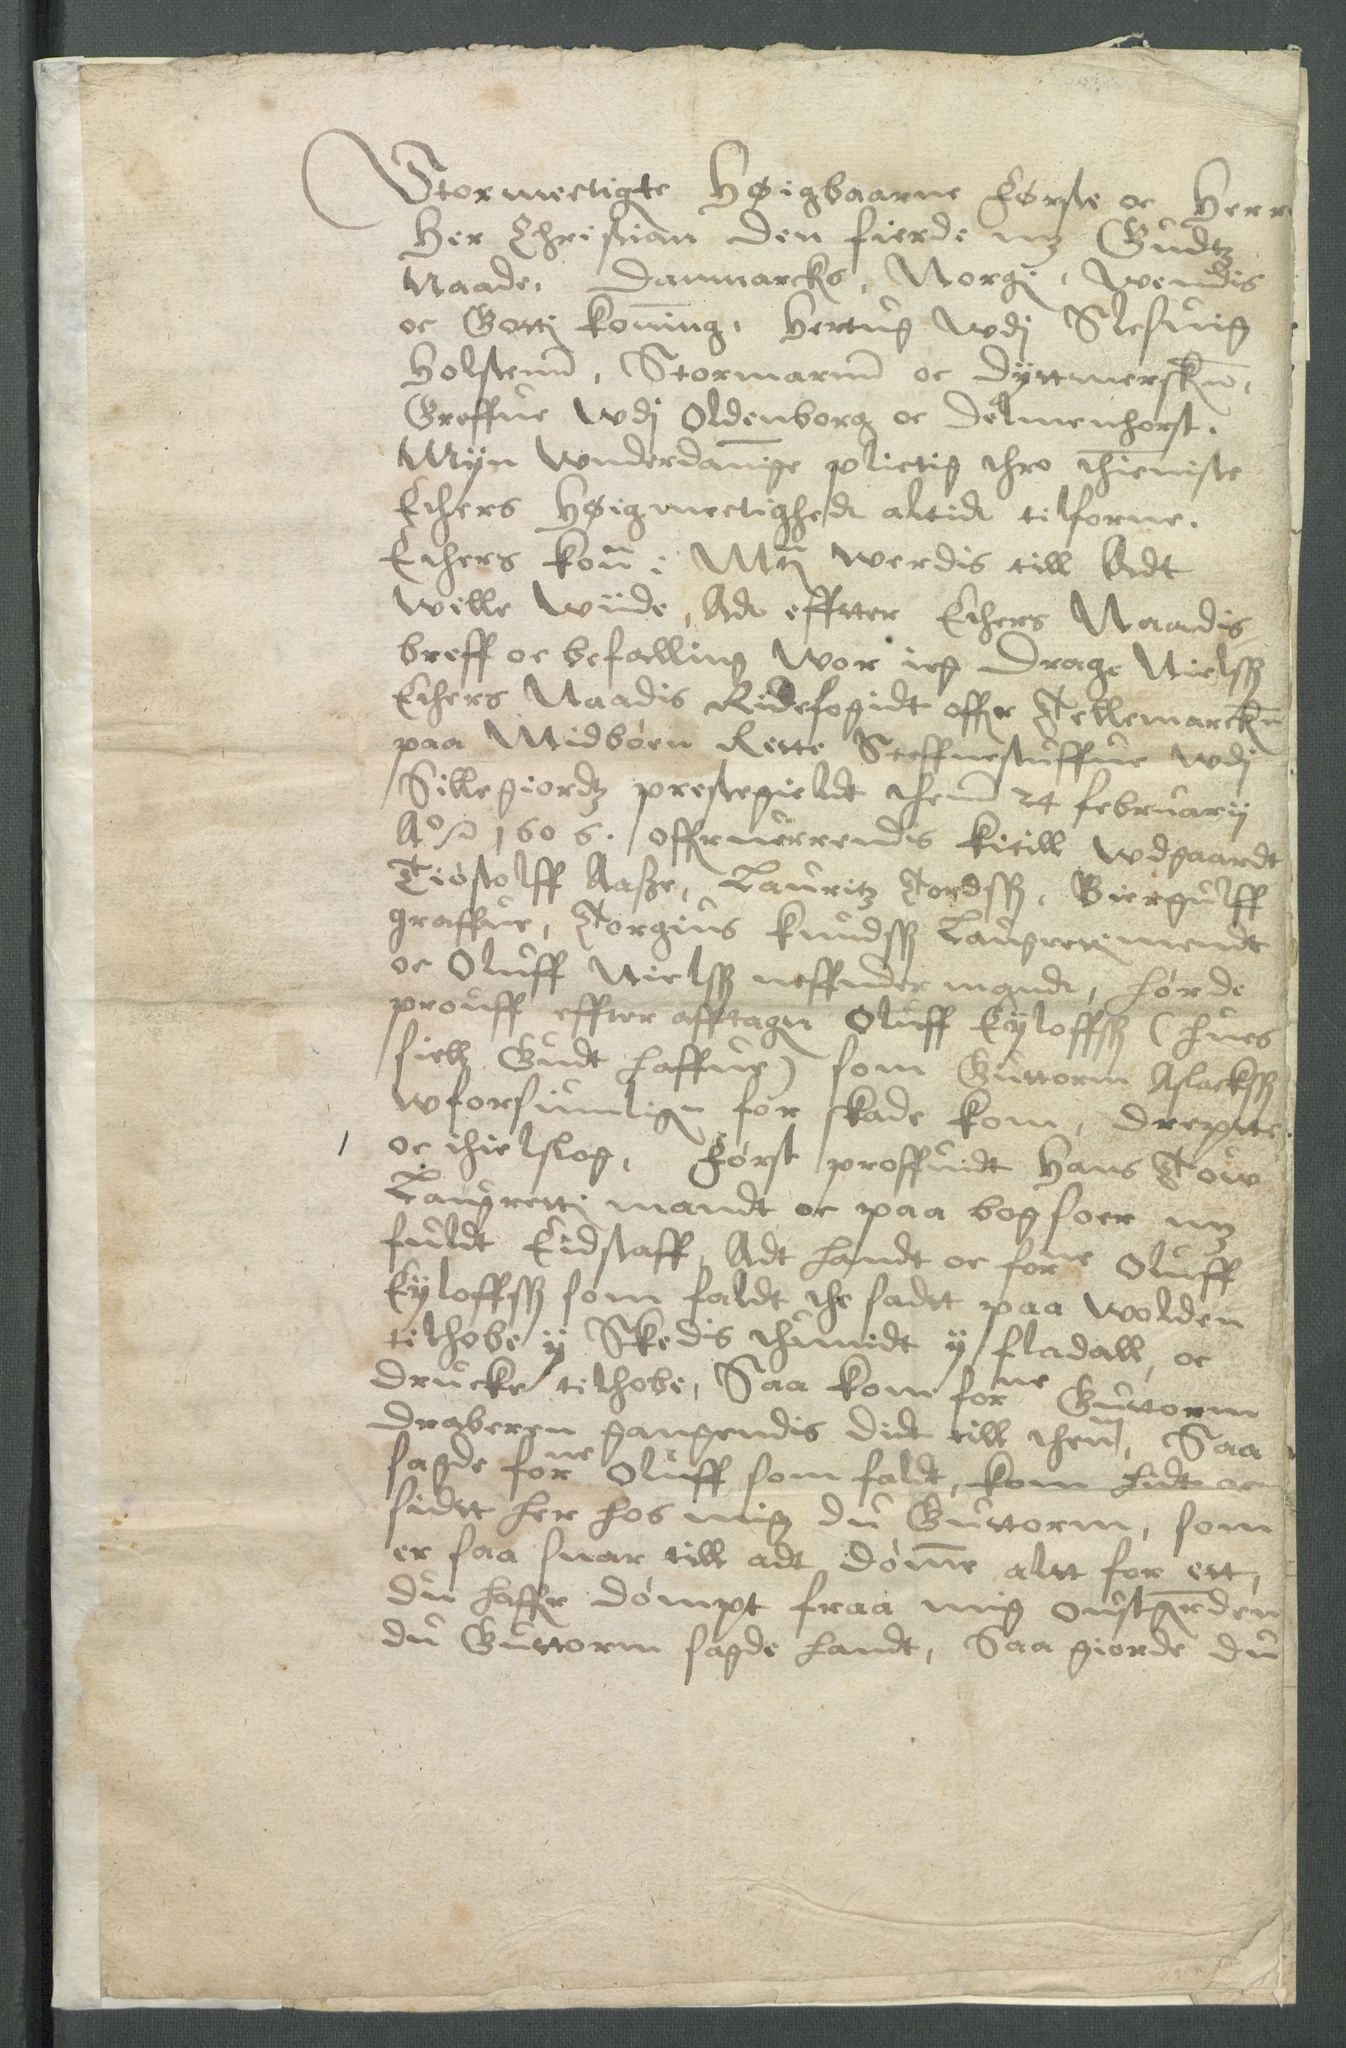 Stormectigte Høigbaarne Første oc Herr
Her Christian den fierde mz Gudtz
Naade, Danmarcks, Norgi, Wendis
oc Gotti Koning, Hertug wdj Slesuig
Holstenn, Stormarnn oc Dÿttmerskn,
Greffue wdj Oldenborg oc Delmenhorst.
Mÿn wnderdanige plictig thro thieniste
Ethers Høigmectighedt altidt tilforne.
Ethers Kon: Mtj werdis till Adt
wille wiide, Adt effter Ethers Naadis
breff oc befalling wor ieg Drage Nielss
Ethers Naadis Ridefogidt offr Tellemarckn
paa Midbøen Rette Steffnestuffue wdj
Sillegiordtz prestegieldt thenn 24 februarÿ
Ao 1606. offruerrendis Kitill wdgaardt
Tiøstolff Aase, Lauritz Tordss, Biergulff
graffue, Torgius Knudss Laugrettimendt
oc Oluff Nielss neffnder mandt, hørde
prouff effter afftagn Oluff Eÿloffss (hues
siell Gudt haffue) som Guttorm Aslackss
wforsiunlign for skade kom, dreptte
1 oc ihielslog, Først proffuidt Hans Tow
Laugretti mandt oc paa bog soer mz
fuldt Eidstaff, Adt handt oc forne Oluff
Eÿloffss som faldt the sadtt paa wolden
tilhobe ÿ Skedis thunidt ÿ fladall, oc
drucke tilhobe, Saa kom forne Guttorm
draberen gangendis didt till them, Saa
sagde forne Oluff som faldt, kom hidt oc
sidtt her hos mig du Guttorm, som
er saa snar till adt dømme altt for ett,
du haffr dømpt fraa mig Oustgarden
du Guttorm sagde handt, Saa giorde du